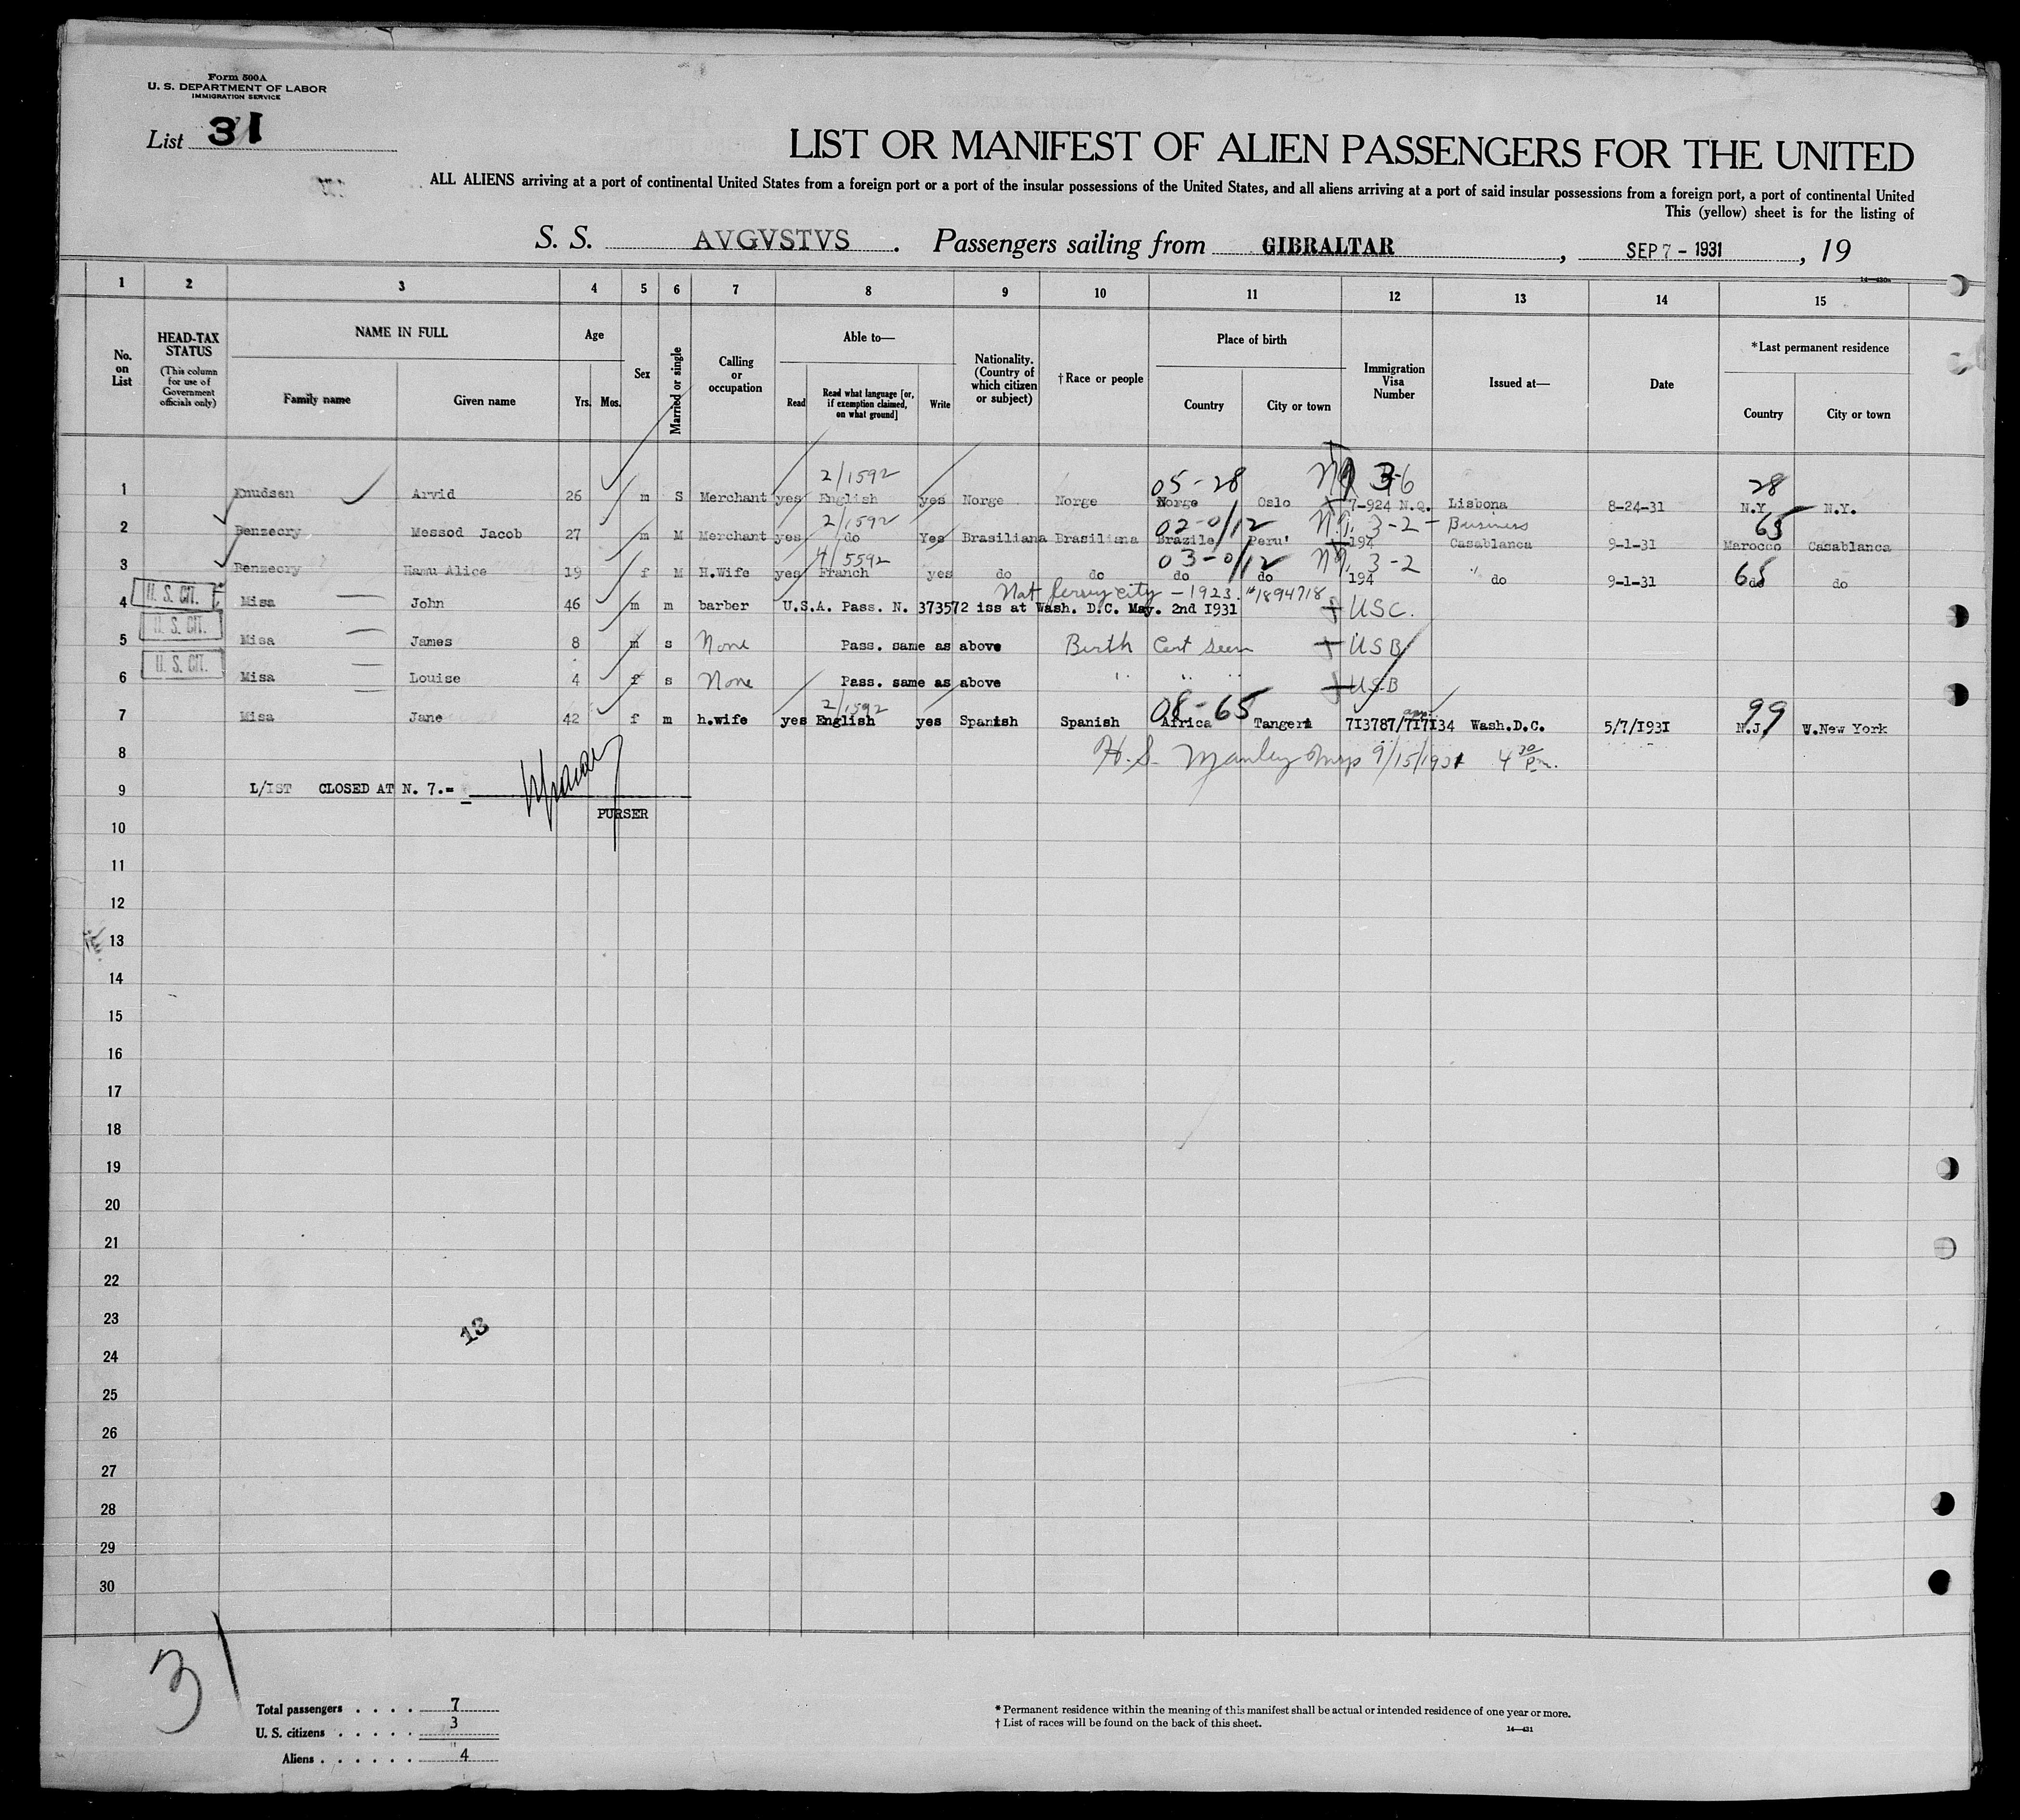 Form 500A
U. S. DEPARTMENT OF LABOR
IMMIGRATION SERVICE
List 31
LIST OR MANIFEST OF ALIEN PASSENGERS FOR THE UNITED
ALL ALIENS arriving at a port of continental United States from a foreign port or a port of the insular possessions of the United States, and all aliens arriving at a port of said insular possessions from a foreign port, a port of continental United
This (yellow) sheet is for the listing of
S. S. AVGVSTVS . Passengers sailing from GIBRALTAR , SEP 7 - 1931 , 19
14—430a
1 2 3 4 5 6 7 8 9 10 11 12 13 14 15
No. on List
HEAD-TAX STATUS
(This column for use of Government officials only)
NAME IN FULL
Family name Given name
Age
Yrs. Mos.
Sex
Married or single
Calling or occupation
Able to—
Read
Read what language [or, if exemption claimed, on what ground]
Write
Nationality. (Country of which citizen or subject)
† Race or people
Place of birth
Country City or town
Immigration Visa Number
Issued at—
Date
* Last permanent residence
Country City or town
2/1592 05-28 28
1 Knudsen Arvid 26 m S Merchant yes English yes Norge Norge Norge Oslo 7-924 N.Q. Lisbona 8-24-31 N.Y. N.Y.
2/1592 02-0/12 3-2 - Business 65
2 Benzecry Messod Jacob 27 m M Merchant yes do Yes Brasiliana Brasiliana Brazile Peru' 194 Casablanca 9-1-31 Marocco Casablanca
4/5592 03-0/12 3-2 65
3 Benzecry Hamu Alice 19 f M H.Wife yes Franch yes do do do do 194 " do 9-1-31 do do
Nat Jersey City - 1923. #1894718
4 U. S. CIT. Misa John 46 m m barber U.S.A. Pass. N. 373572 iss at Wash. D.C. May. 2nd 1931 USC.
5 U. S. CIT. Misa James 8 m s None Pass. same as above Birth Cert seen USB
6 U. S. CIT. Misa Louise 4 f s None Pass. same as above " " " USB
2/1592 08-65 99
7 Misa Jane 42 f m h.wife yes English yes Spanish Spanish Africa Tangeri 713787/717134 Wash.D.C. 5/7/1931 N.J. W.New York
8 H. S. Manley 9/15/1931 4 30 P.m.
9 L/IST CLOSED AT N. 7.=
PURSER
10
11
12
13
14
15
16
17
18
19
20
21
22
23
13
24
25
26
27
28
29
30
31
Total passengers . . . . 7
U. S. citizens . . . . . 3
Aliens . . . . . . 4
* Permanent residence within the meaning of this manifest shall be actual or intended residence of one year or more.
† List of races will be found on the back of this sheet.
14—431